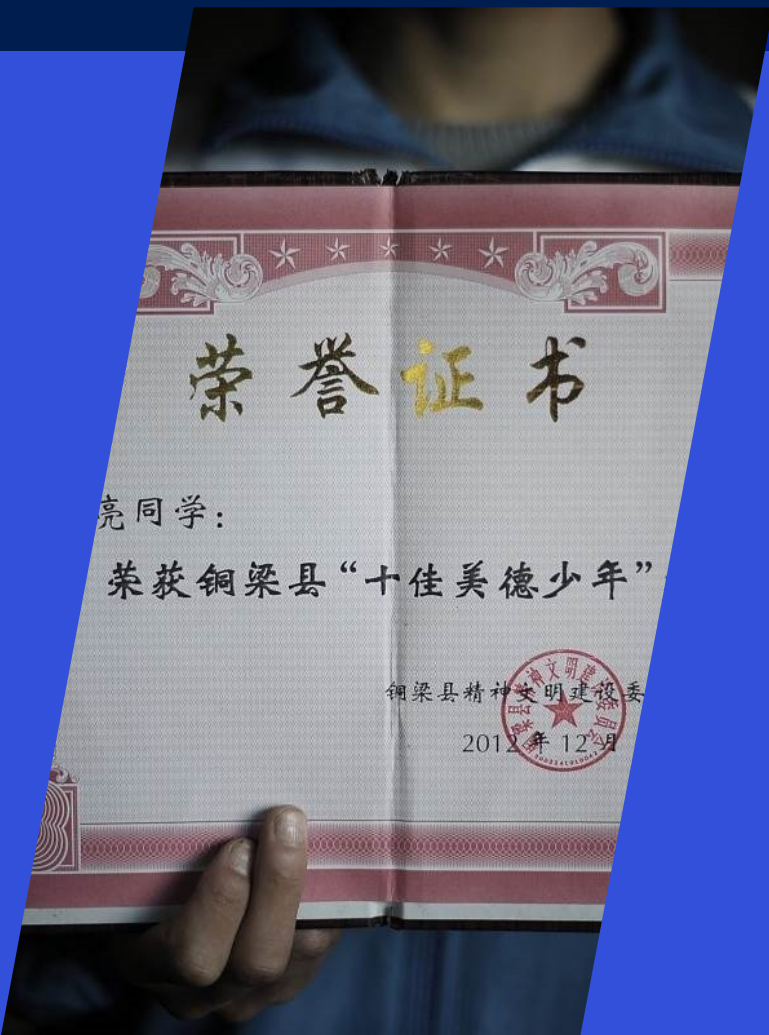 荣誉证书
亮同学：
荣获铜梁县“十佳美德少年”
铜梁县精神文明建设委
2012年12月